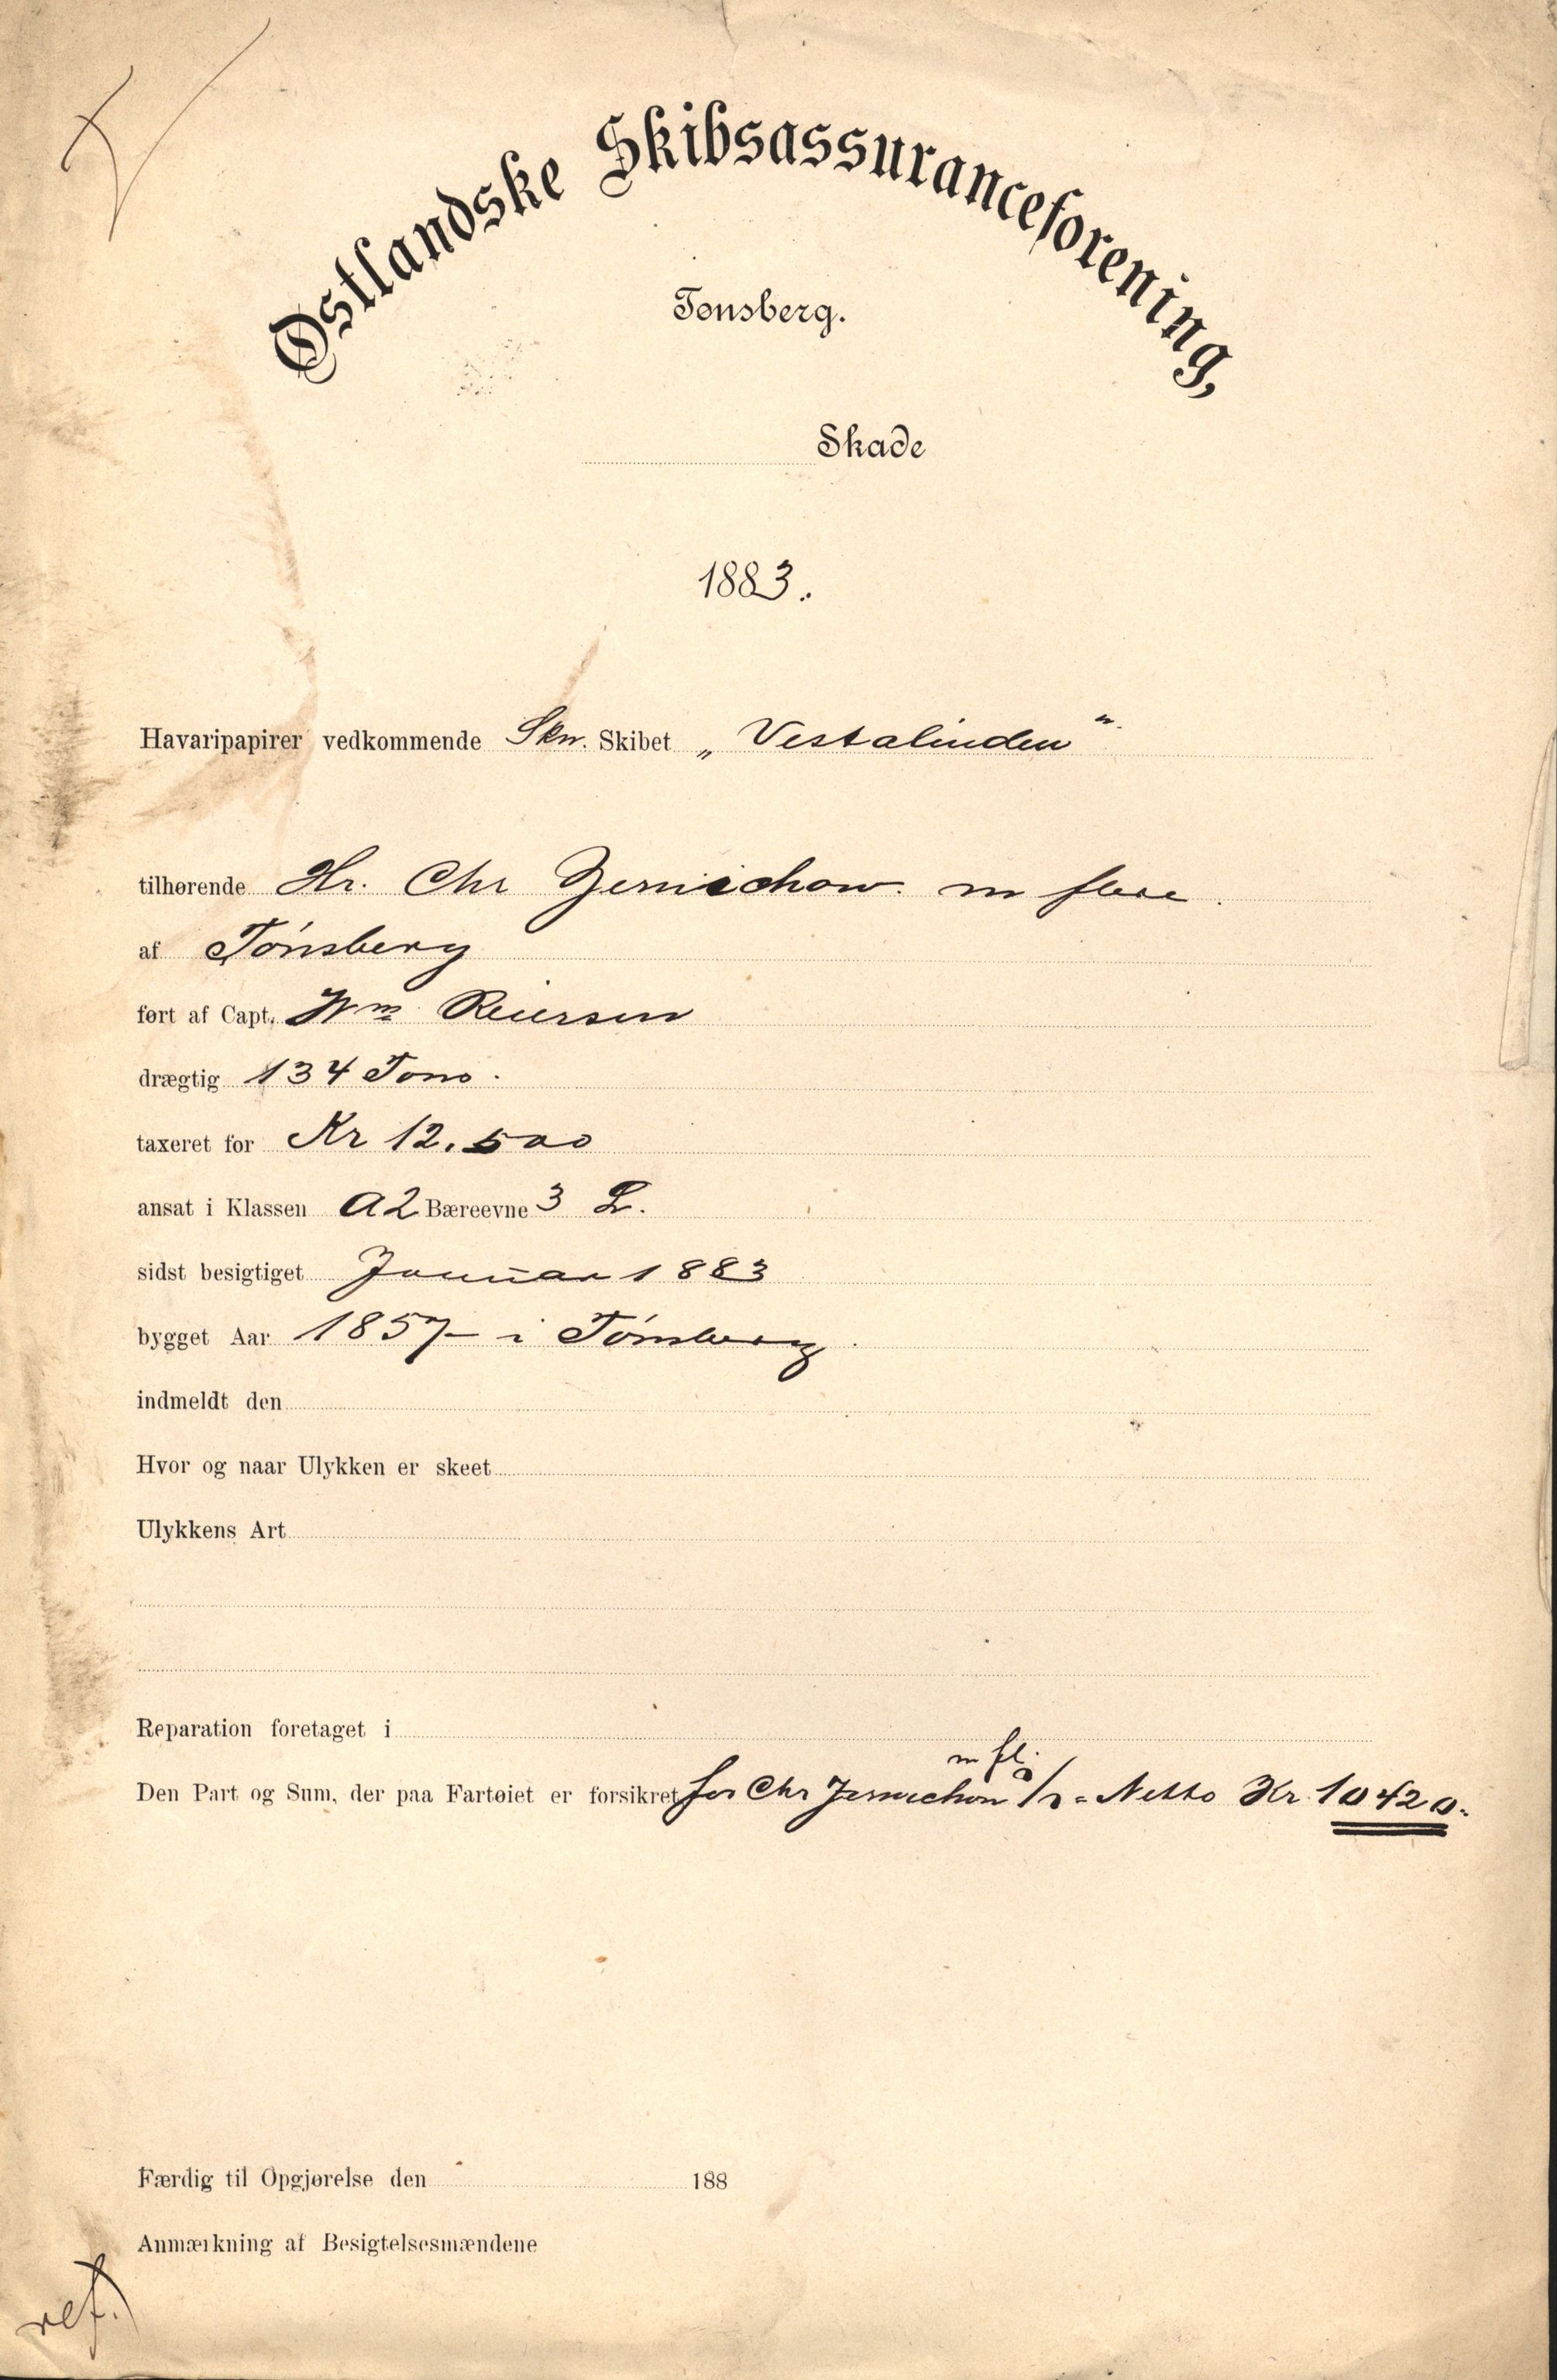 Østlandske Skibsassuranceforening,
Tønsberg.
Skade
1883.
Havaripapirer vedkommende Skn. Skibet „Vestalinden“
tilhørende Hr. Chr Jernichow m flere.
af Tønsberg
ført af Capt. Wm Reiersen
drægtig 134 Tons.
taxeret for Kr 12.500
ansat i Klassen A2 Bæreevne 3 L.
sidst besigtiget Januar 1883
bygget Aar 1857 i Tønsberg.
indmeldt den
Hvor og naar Ulykken er skeet
Ulykkens Art
Reparation foretaget i
m fl.
Den Part og Sum, der paa Fartøiet er forsikret for Chr Jernichow Netto Kr 10420.
Færdig til Opgjørelse den 188
Anmærkning af Besigtelsesmændene
ref.